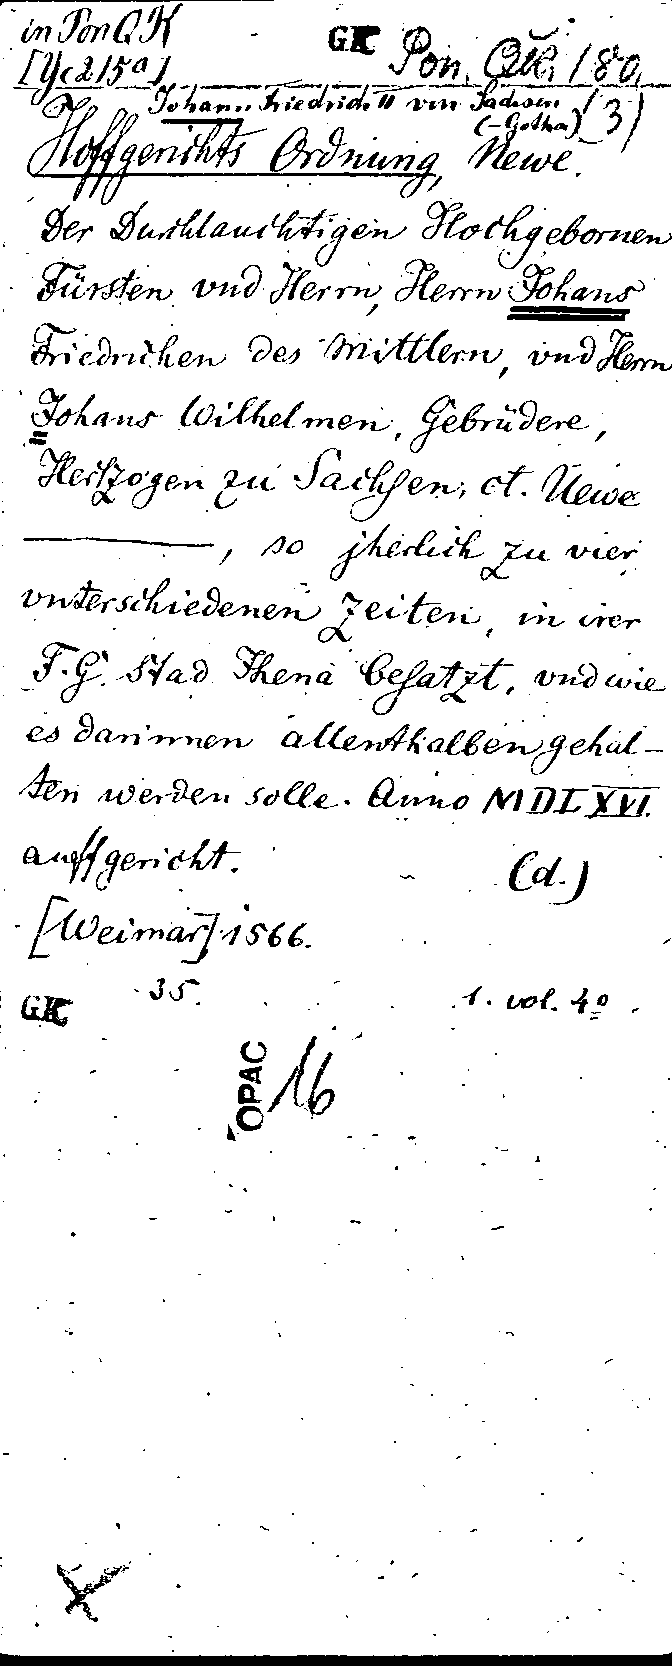 in Pon QK GK Pon. QK. 180
[Yc 215a] (3)
Johann Friedrich II von Sachsen
(-Gotha)
Hoffgerichts Ordnung, Newe.
Der Durchlauchtigen Hochgebornen
Fürsten vnd Herrn, Herrn Johans
Friedrichen des Mittlern, vnd Herrn
Johans Wilhelmen, Gebrüdere,
Hertzogen zu Sachsen, ct. Newe
———, so jherlich zu vier
vnterschiedenen Zeiten, in irer
F. G. Stad Jhena besatzt, vnd wie
es darinnen allenthalben gehal-
ten werden solle. Anno MDLXVI.
auffgericht. (d.)
[Weimar] 1566.
GK 35. 1. vol. 4º.
OPAC 16